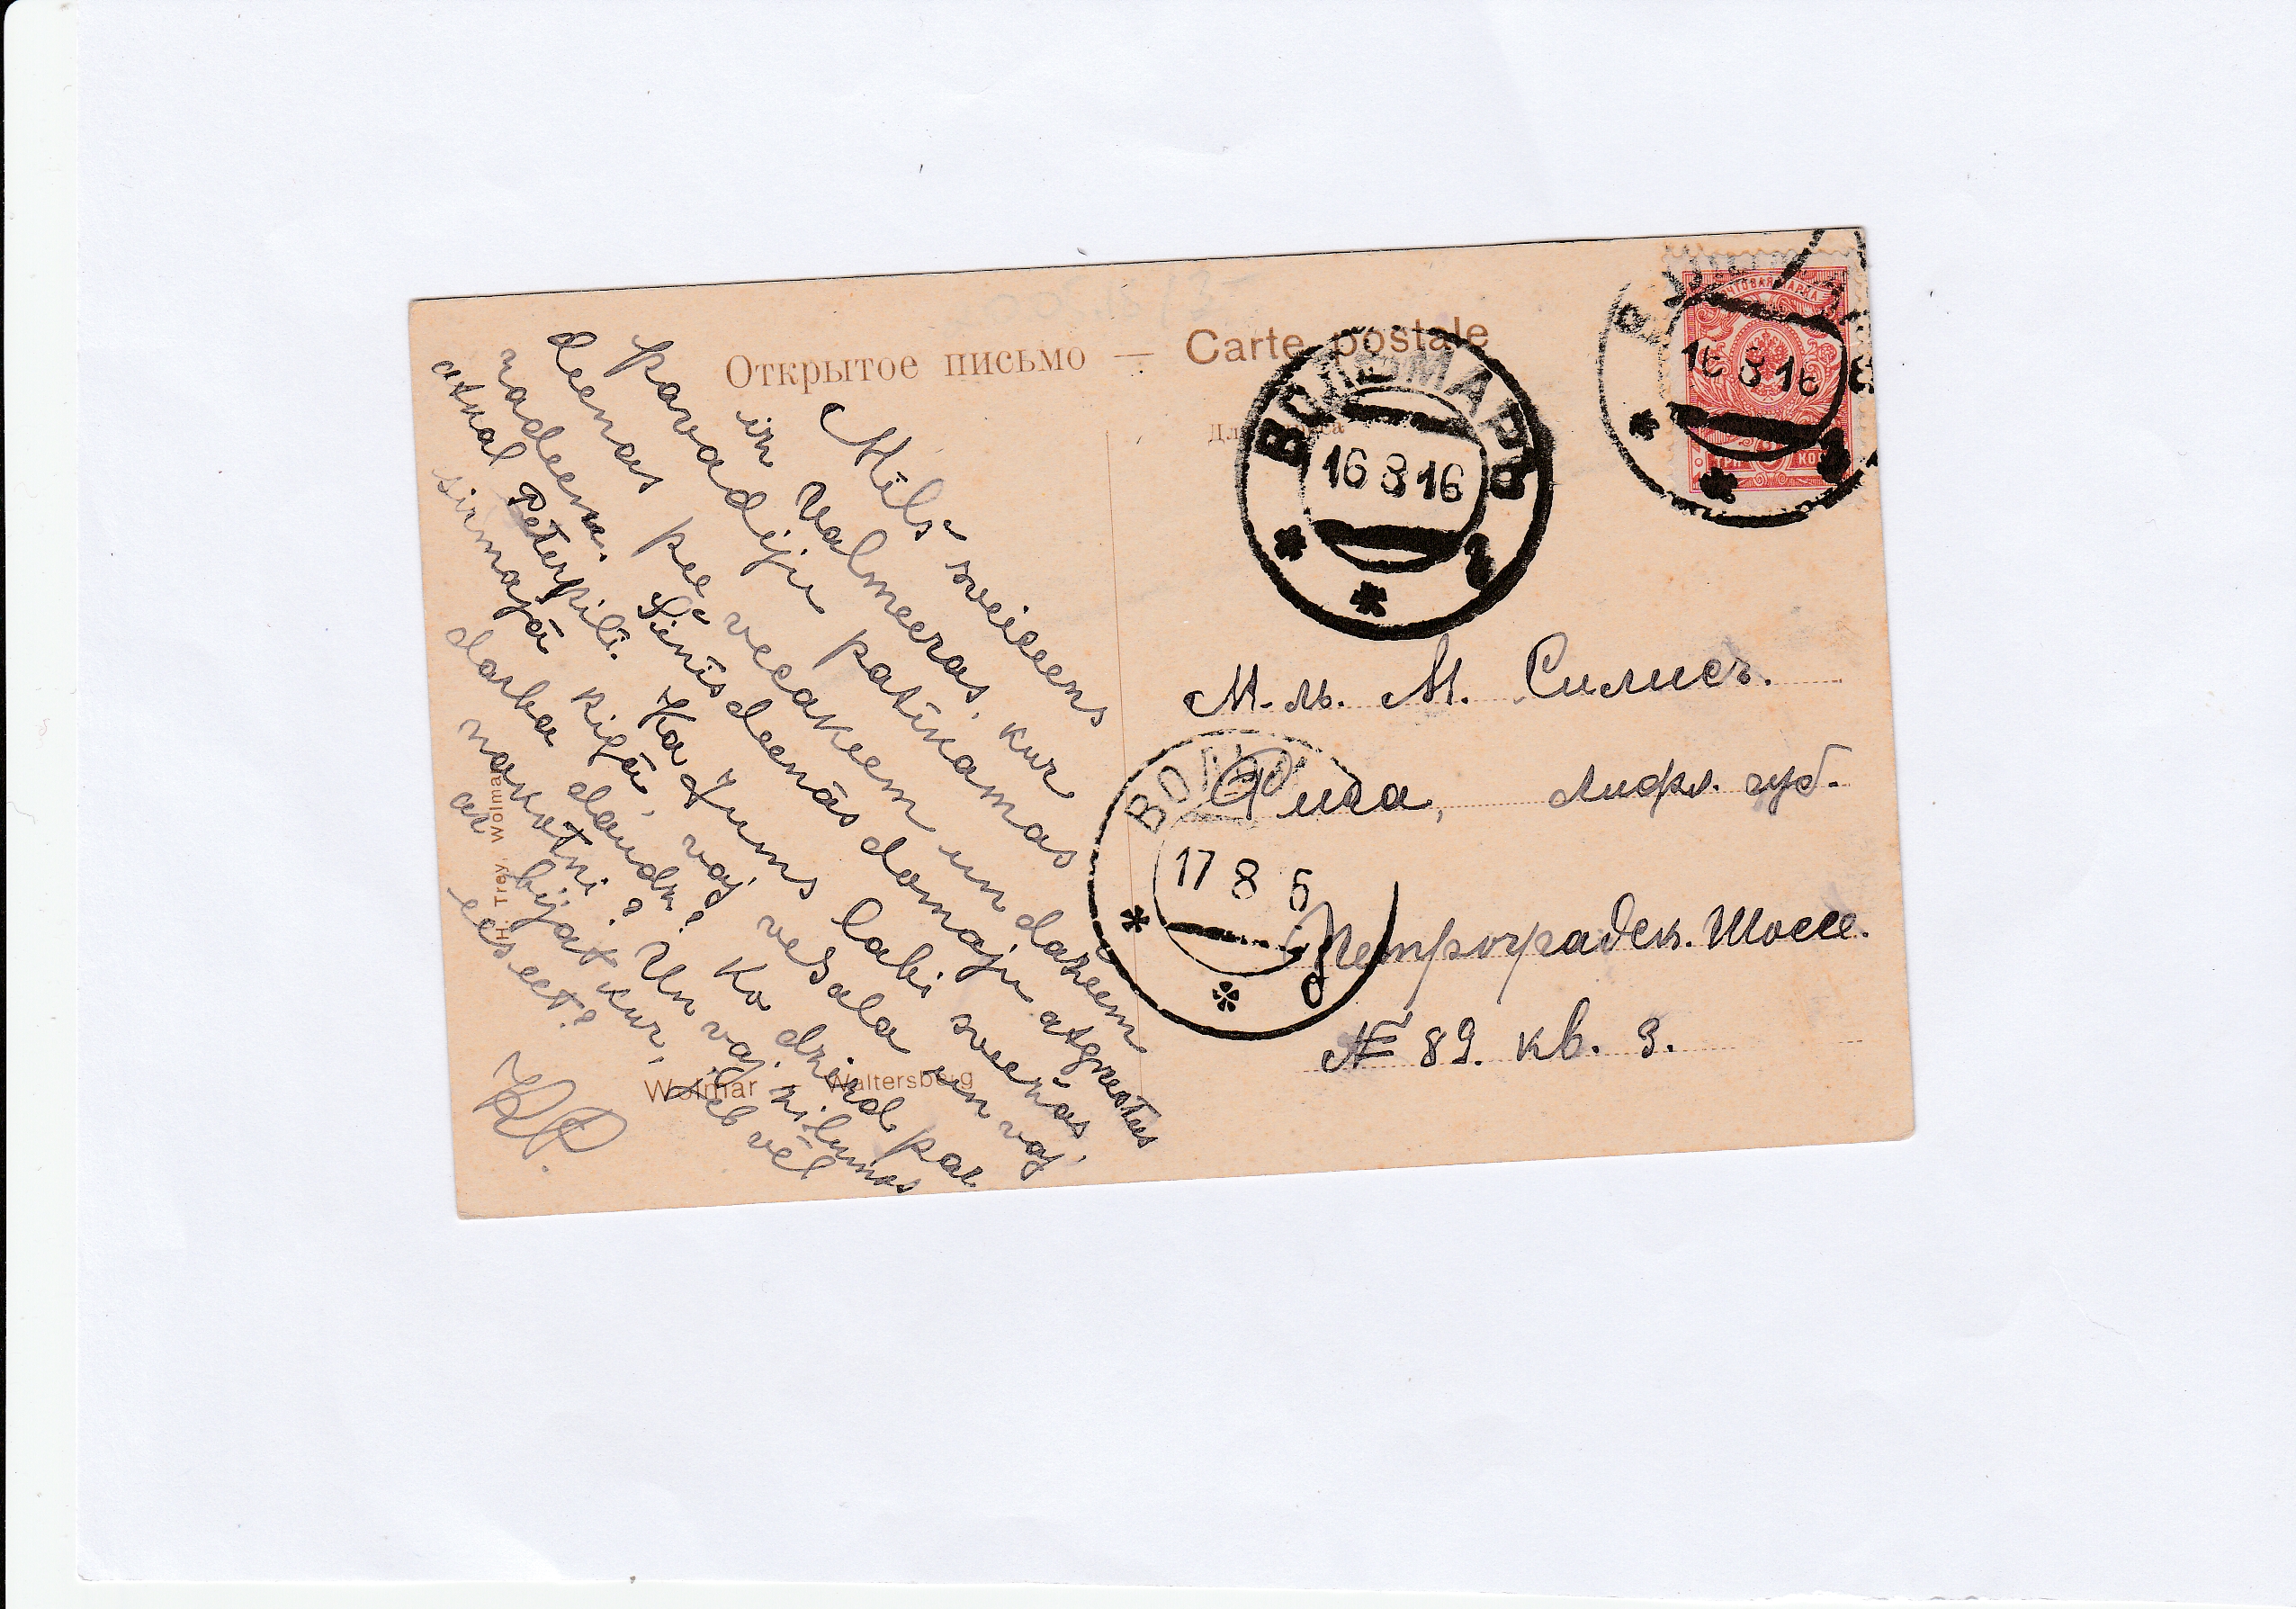 Открытое письмо — Carte postale
ВОЛЬМАРЪ
16 8 16
16 8 16
ПОЧТОВАЯ МАРКА
ТРИ КОП
Mīls sveiciens
iz Valmeeras, kur
pavadiju patīkamas
deenas pee vecakeem un dazeem
radeem. Šinīs deenās domaju atgreestus
atkal Pēterpilī. Kā Jums labi sveekās,
sirmajā Rigā, vaj vesala un vaj
darba daudz? Ko dzird par
nakotni? Un vaj nilumos
ar bijat kur, jeb vēl
eeseet?
KR.
М-ль. М. Силисъ.
Рига, Лифл. губ.
Петроградск. Шоссе.
№ 89. кв. 9.
ВОЛЬМ
17 8 6
H. Trey, Wolmar
Wolmar - Waltersberg